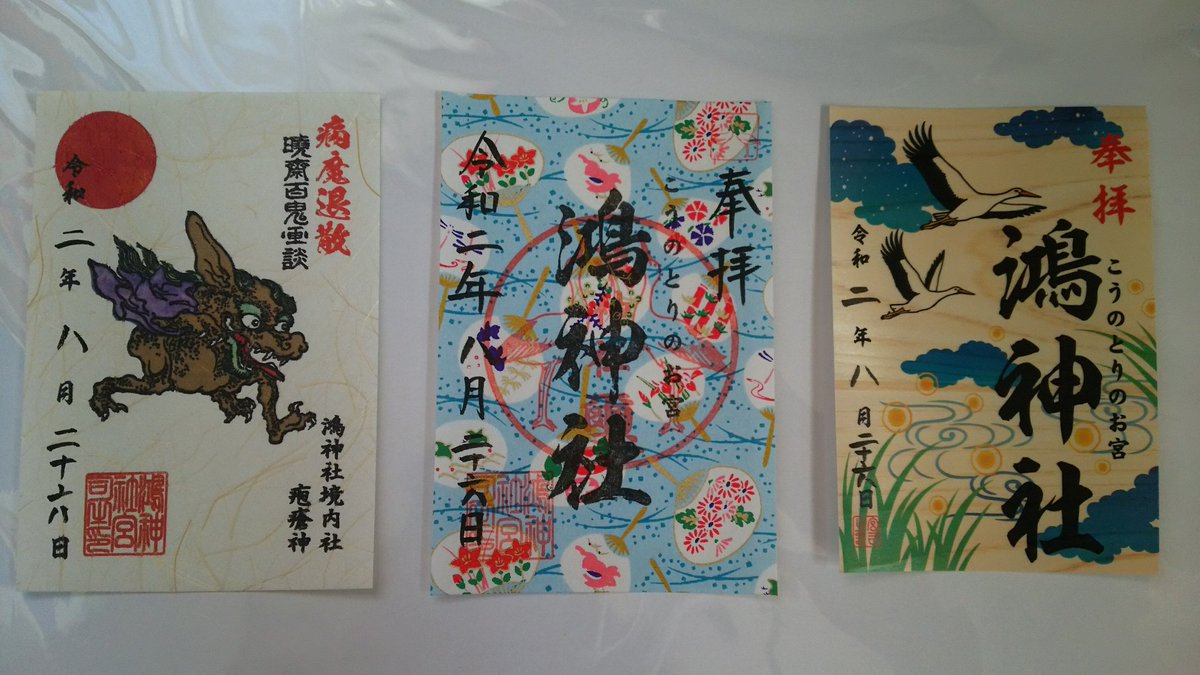 病魔退散
暁斎百鬼画談
鴻神社境内社
疱瘡神
令和二年八月二十六日
鴻神社宮司之印
奉拝
こうのとりのお宮
鴻神社
令和二年八月二十六日
奉拝
こうのとりのお宮
鴻神社
令和二年八月二十六日